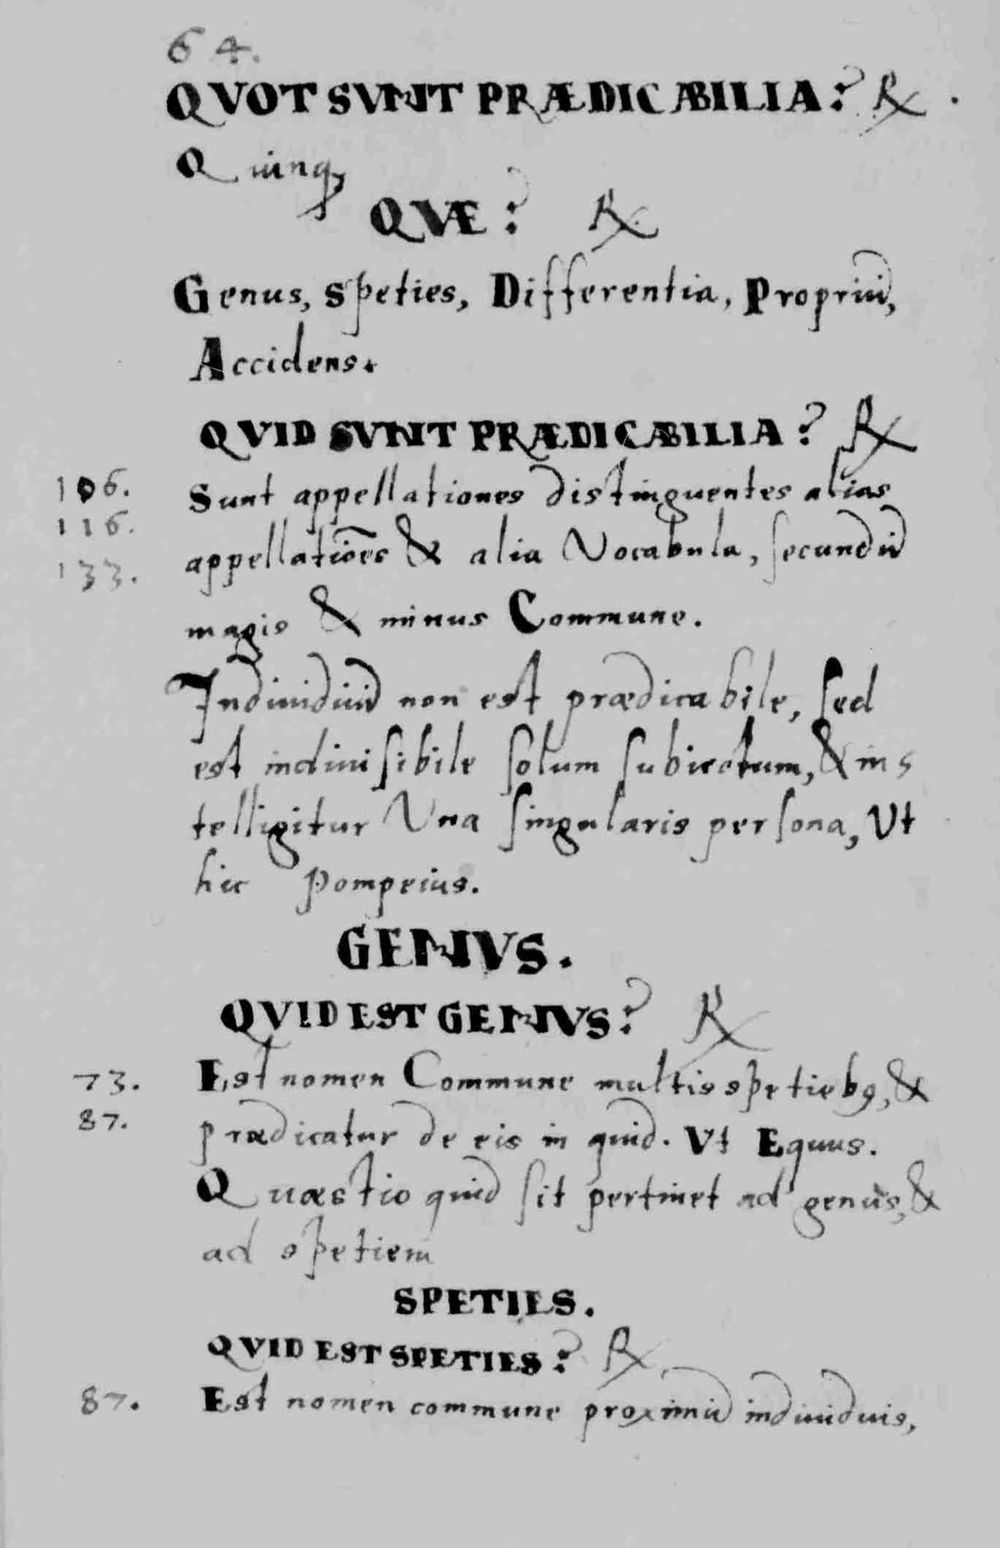 64.
QVOT SVNT PRÆDICABILIA? ℞.
Quinq₃
QVÆ? ℞
Genus, Speties, Differentia, Propriũ,
Accidens.
QVID SVNT PRÆDICABILIA? ℞
106. Sunt appellationes distinguentes alias
116. appellatiões & alia Vocabula, secundũ
133. magis & minus Commune.
Indiuiduũ non est prædicabile, sed
est indiuisibile solum subiectum, & in⸗
telligitur Vna singularis persona, Vt
hic Pompeius.
GENVS.
QVID EST GENVS? ℞
73. Est nomen Commune multis spetieb9, &
87. prædicatur de eis in quid. Vt Equus.
Quæstio quid sit pertinet ad genus, &
ad spetiem
SPETIES.
QVID EST SPETIES? ℞
87. Est nomen commune proximũ indiuiduis,